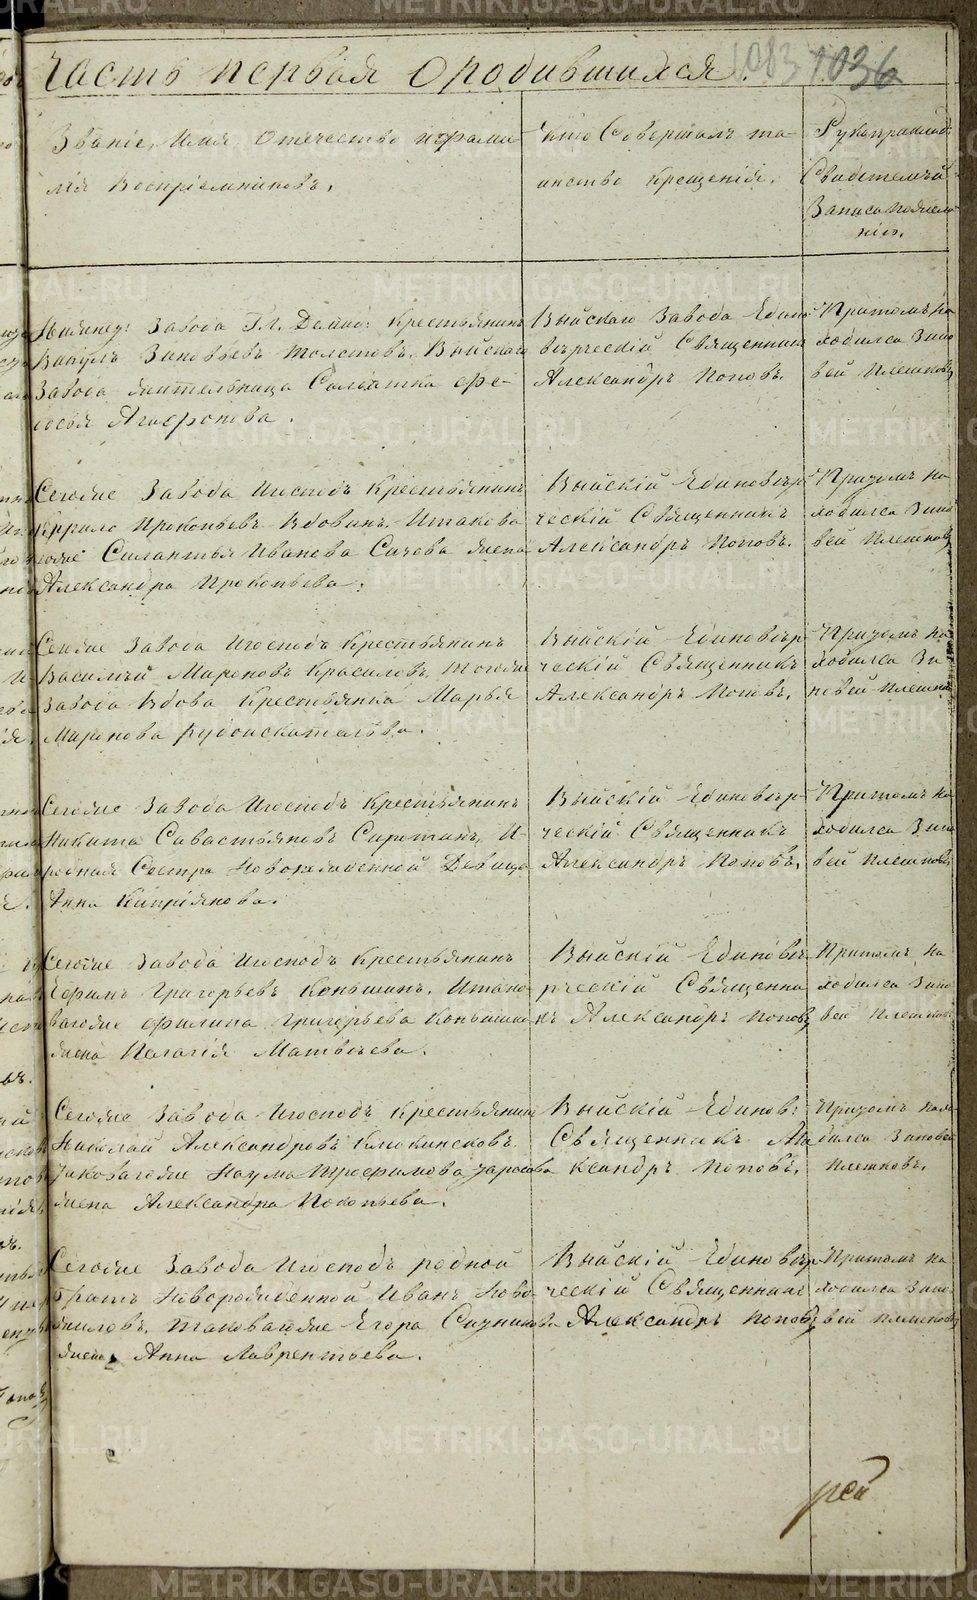 Часть первая О родившихся.
1083 1036
Званіе, Имя, Отечество и фами-
лія Воспріемниковъ.
Кто Совершалъ та-
инство Крещенія.
Рукоприклад:
Свидетелей
Записа по желанію.
завода Гл. Крестьянинъ
Зиновьевъ Толстовъ. Выйскаго
Завода жительница Солдатка Фе-
досья Агафонова.
Выйскаго Завода Едино
верческій Священникъ
Александръ Поповъ.
Притомъ на
ходился Зино
вей Плешковъ
Сегоже Завода Игосподъ Крестьянинъ
Кирило Прокопьевъ Вдовинъ. Итакова
гоже Силантья Иванова Сичева жена
Александра Прокопьева.
Выйскій Единовѣр-
ческій Священникъ
Александръ Поповъ.
Притомъ на
ходился Зино
вей Плешковъ
Сегоже Завода Игоспод Крестьянинъ
Василѣй Мироновъ Красиловъ, тогоже
завода Вдова Крестьянка Марья
Миронова
Выйскій Единовѣр
ческій Священникъ
Александръ Поповъ.
Притомъ на
ходился Зи
новей Плешко
Сегоже Завода Игоспод Крестьянинъ
Никита Савастьяновъ Сиротинъ, И-
родная Сестра Новокрещенной Девица
Анна Кипріянова.
Выйскій Единовѣр-
ческій Священникъ
Александръ Поповъ.
Притомъ на
ходился Зино
вей Плешковъ
Сегоже Завода Игоспод Крестьянинъ
Ефимъ Григорьевъ Коньшинъ. Итако-
вагоже Филипа Григорьева Коньшина
жена Палагія Матвѣева.
Выйскій Единовѣ
рческій Священни
къ Александръ Поповъ
Притомъ на
ходился Зино
вей Плешковъ
Сегоже Завода Игоспод Крестьянинъ
Николай Александровъ
Таковагоже Наума Трофимова Тарасова
жена Александра Покопьева.
Выйскій Единов:
Священникъ Але
ксандръ Поповъ.
Притомъ нахо
дился Зиновей
Плешковъ.
Сегоже Завода Игоспод родной
братъ Новорожденной Иванъ Ново-
жиловъ, таковагоже Егора
жена Анна Лаврентьева.
Выйскій Единовѣр
ческій Священник
Александръ Поповъ
Притомъ на
ходился Зино
вей Плешковъ
рей
METRIKI.GASO-URAL.RU